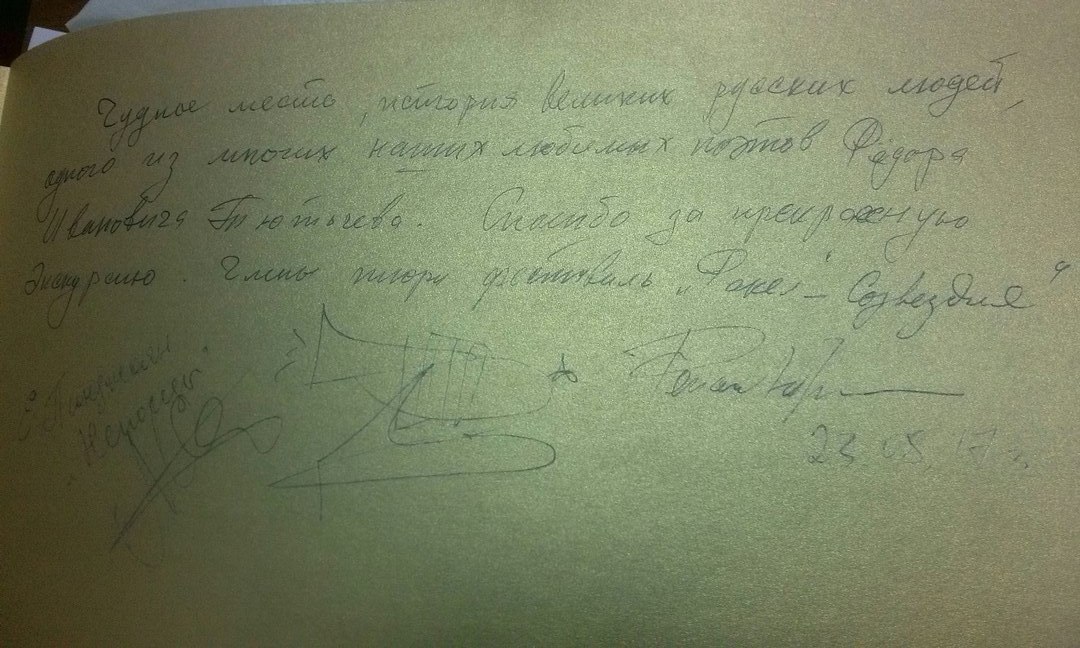 Чудное место, история великих русских людей,
одного из многих наших любимых поэтов Фёдора
Ивановича Тютьчева. Спасибо за прекрасную
Экскурсию. Члены жюри фестиваль „Факел - Созвездия“
23.05.17 г.